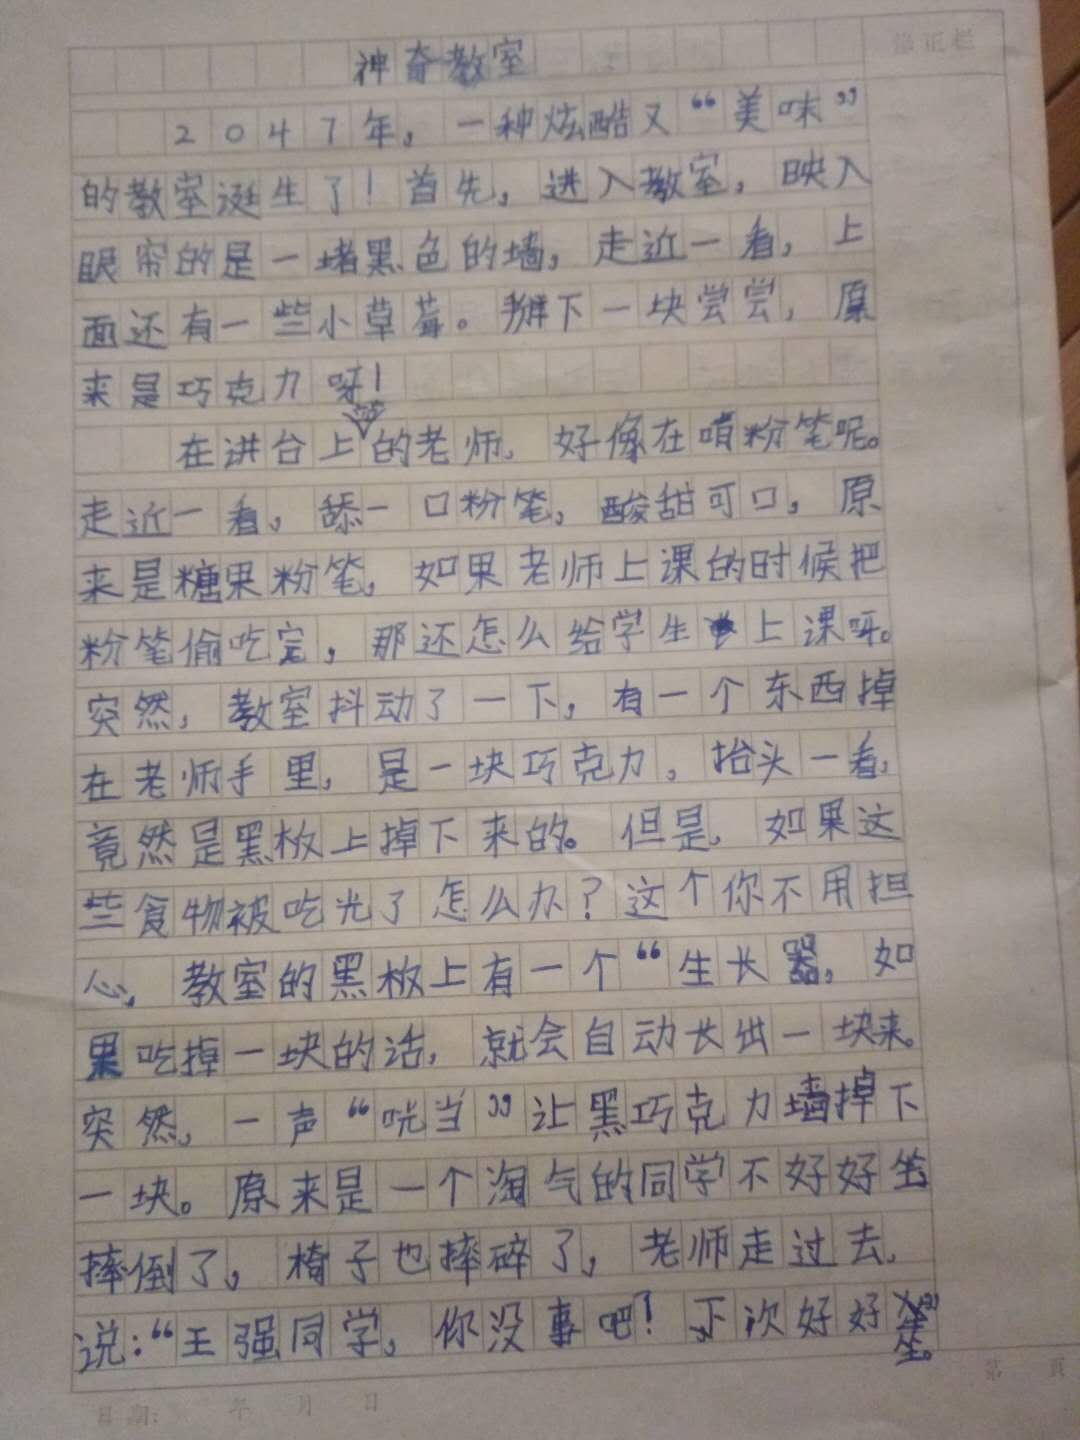 修正栏
神奇教室
2047年，一种炫酷又“美味”
的教室诞生了！首先，进入教室，映入
眼帘的是一堵黑色的墙，走近一看，上
面还有一些小草莓。掰下一块尝尝，原
来是巧克力呀！
在讲台上的老师，好像在啃粉笔呢。
走近一看，舔一口粉笔，酸甜可口，原
来是糖果粉笔，如果老师上课的时候把
粉笔偷吃完，那还怎么给学生上课呀。
突然，教室抖动了一下，有一个东西掉
在老师手里，是一块巧克力，抬头一看，
竟然是黑板上掉下来的。但是，如果这
些食物被吃光了怎么办？这个你不用担
心，教室的黑板上有一个“生长器，如
果吃掉一块的话，就会自动长出一块来。
突然，一声“咣当”让黑巧克力墙掉下
一块。原来是一个淘气的同学不好好坐
摔倒了，椅子也摔碎了，老师走过去，
说：“王强同学，你没事吧！下次好好坐。”
日期： 年 月 日
第 页